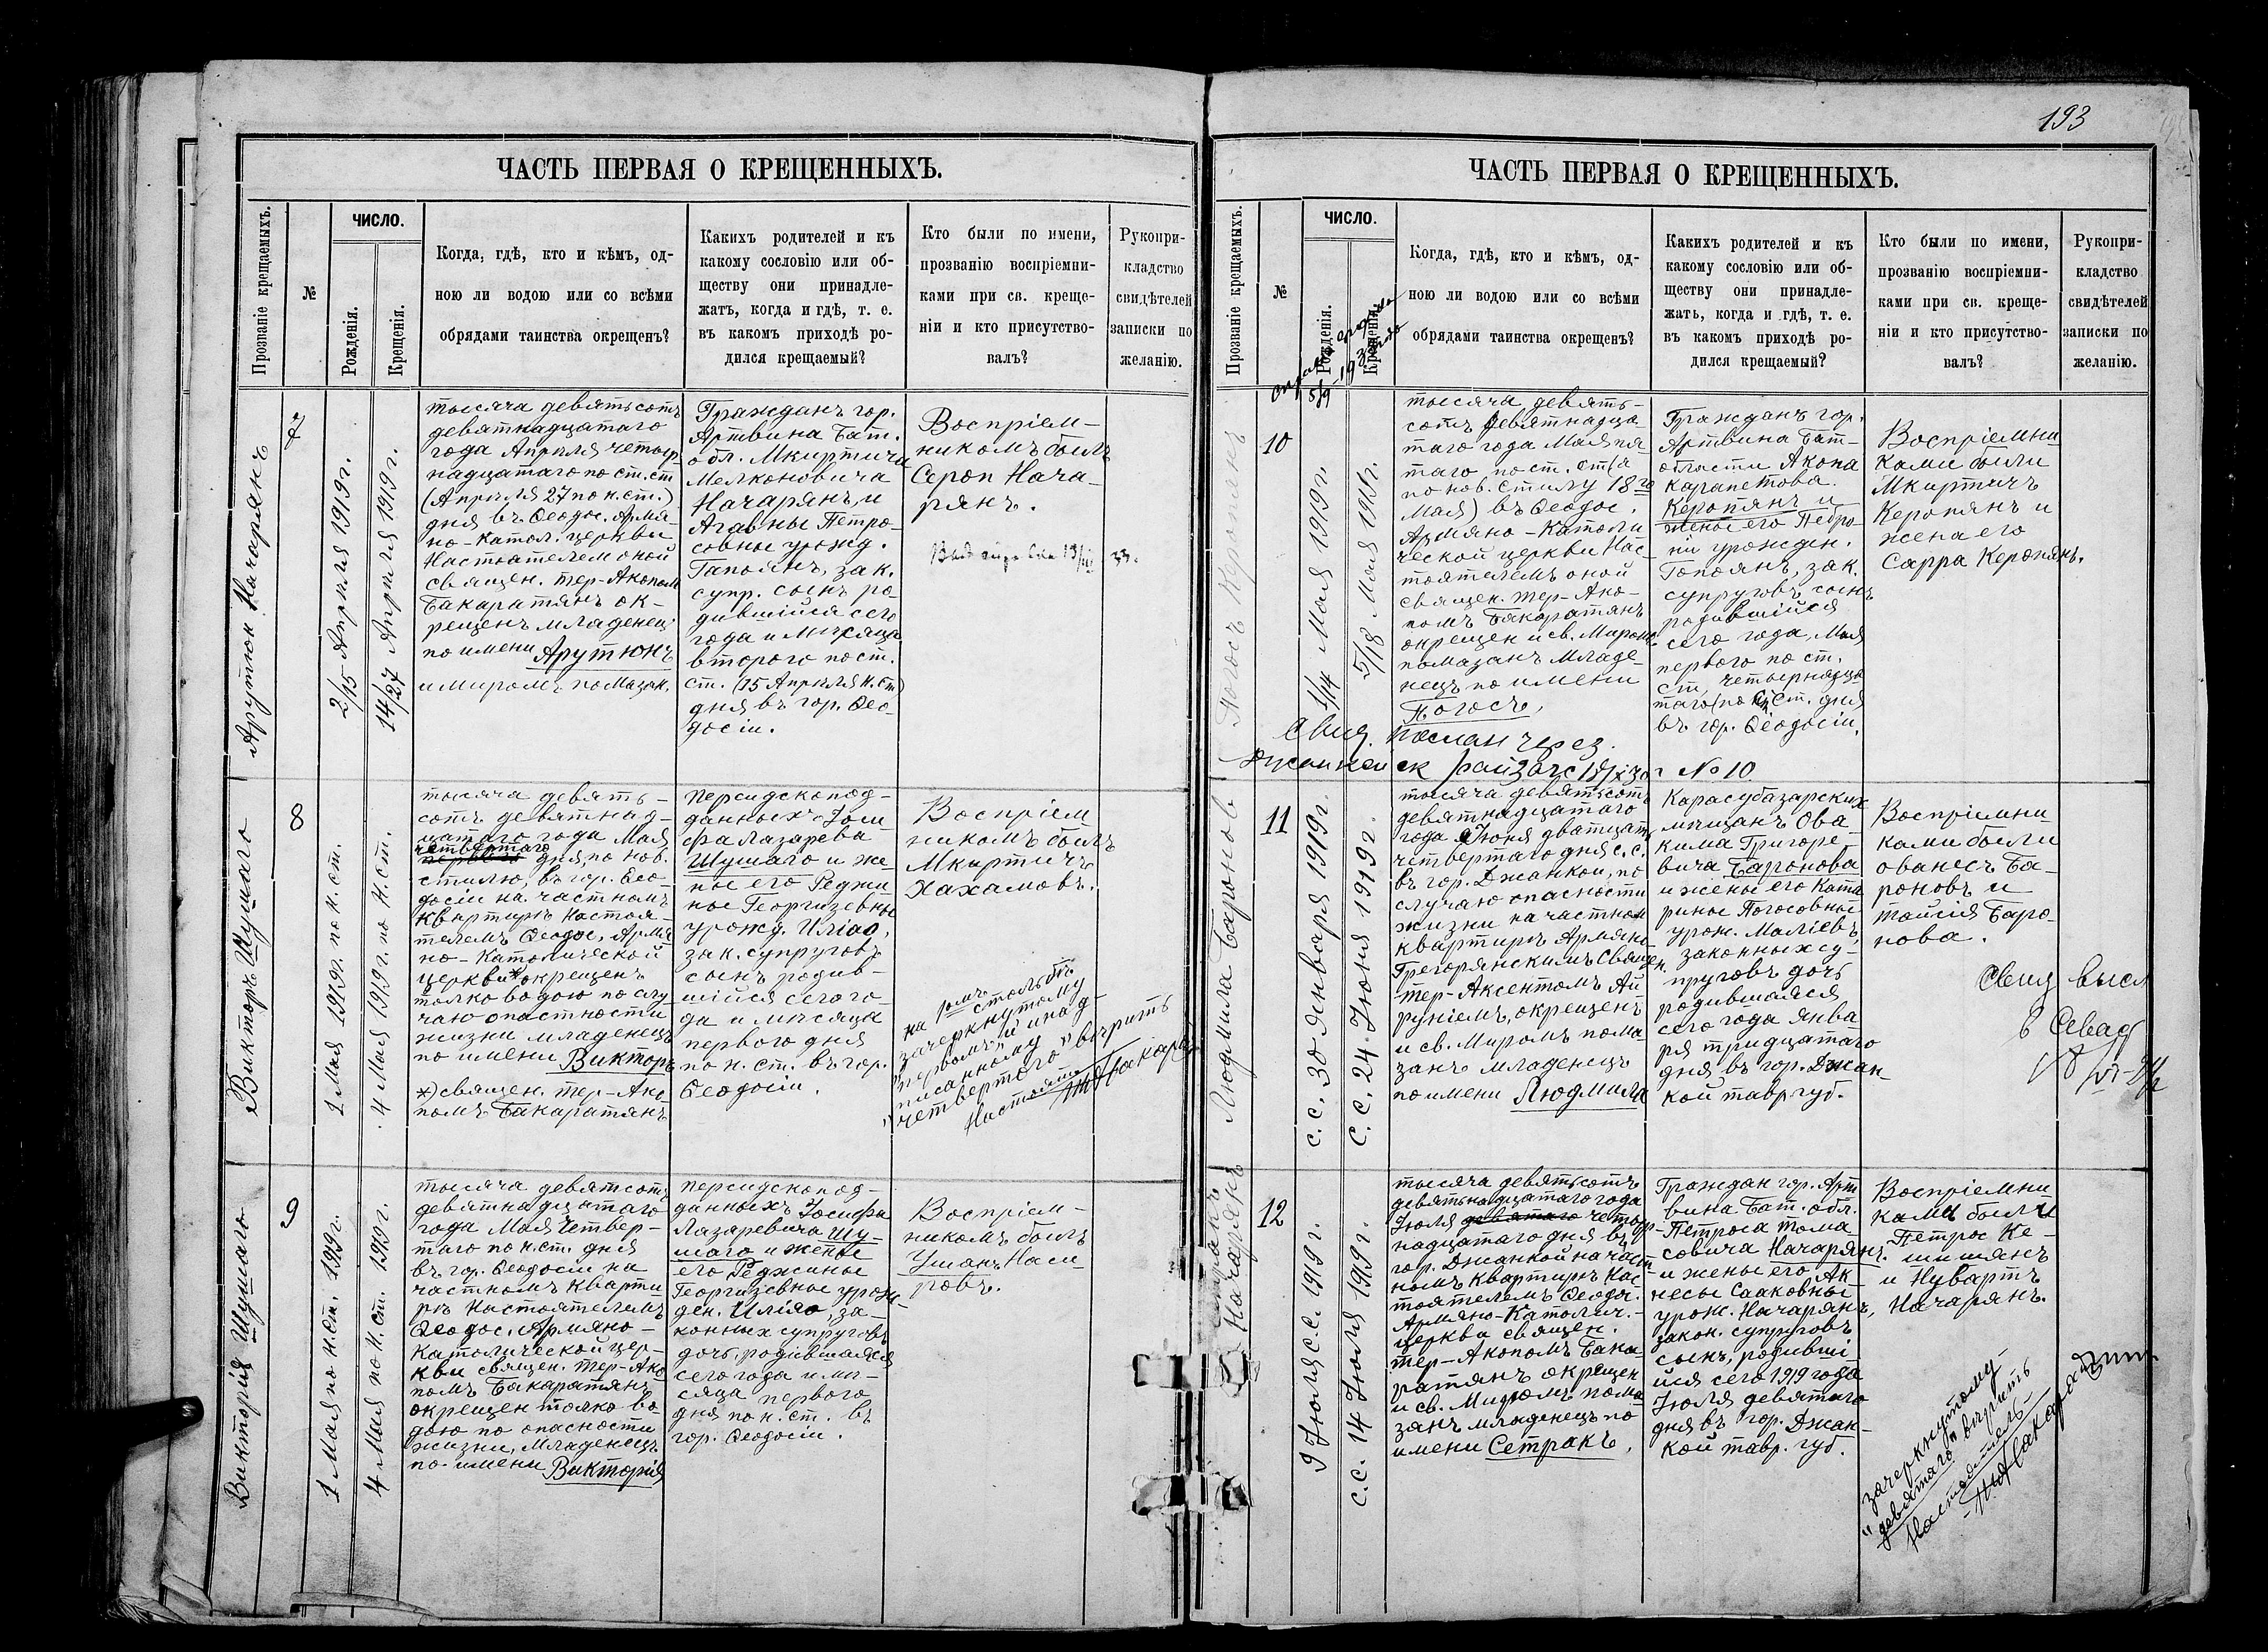 193
ЧАСТЬ ПЕРВАЯ О КРЕЩЕННЫХЪ.
Прозваніе крещаемыхъ.
№
ЧИСЛО.
Рожденія.
Крещенія.
Когда, гдѣ, кто и кѣмъ, од-
ною ли водою или со всѣми
обрядами таинства окрещенъ?
Какихъ родителей и къ
какому сословію или об-
ществу они принадле-
жатъ, когда и гдѣ, т. е.
въ какомъ приходѣ ро-
дился крещаемый?
Кто были по имени,
прозванію воспріемни-
ками при св. креще-
ніи и кто присутство-
валъ?
Рукопри-
кладство
свидѣтелей
записки по
желанію.
Арутюн Начарянъ
7
2/15 Апрѣля 1919 г.
14/27 Апрѣля 1919 г.
тысяча девятьсотъ
девятнадцатаго
года Апрѣля четыр-
надцатаго по ст. ст
(Апрѣля 27 по н. ст.)
дня въ Ѳеодос. Армя-
но-Катол. церкви
Настоятелем оной
священ. тер-Акопом
Бакаратянъ ок-
рещенъ младенец
по имени Арутюнъ
и миромъ помазан.
Гражданъ гор.
Артвина Бат.
обл. Мкиртича
Мелконовича
Начарянъ и
Агавны Петро-
совны урожд.
Гапоянъ, зак.
супр. сынъ ро-
дившійся сего
года и мѣсяца
второго по ст.
ст. (15 Апрѣля н. ст)
дня въ гор. Ѳео-
досіи.
Воспріем-
никомъ былъ
Сероп Нача-
рянъ.
Викторъ Шушаго
8
1 Мая 1919 г. по н. ст.
4 Мая 1919 г. по н. ст.
тысяча девять-
сотъ девятнад-
цатаго года Мая
четвертаго
перваго дня, по нов.
стилю, въ гор. Ѳео-
досіи на частномъ
квартирѣ Настоя-
телемъ Ѳеодос. Армя-
но-Католической
церкви*) окрещенъ
толко водою по слу
чаю опастности
жизни младенецъ
по имени Викторъ
*) священ. тер-Ако
помъ Бакаратянъ
персидскопод-
данныхъ Іоси
фа Лазарева
Шушаго и же-
ны его Реджи
ны Георгіевны
урожд. Иліао,
зак. супруговъ
сынъ родив-
шійся сего го-
да и мѣсяца
перваго дня
по н. ст. въ гор.
Ѳеодосіи.
Воспріем
никомъ былъ
Мкиртичъ
Хахамовъ.
зачеркнутому
"первомъ" и над-
писанному
"четвертого" вѣрить
Настоятель
Викторія Шушаго
9
1 Мая по н. ст. 1919 г.
4 Мая по н. ст. 1919 г.
тысяча девятсотъ
девятнадцатаго
года Мая Четвер-
таго по н. ст. дня
въ гор. Ѳеодосіи на
частномъ кварти
рѣ Настоятелемъ
Ѳеодос. Армяно-
Католической цер-
кви священ. тер-Ако
помъ Бакаратянъ
окрещен толко во
дою по опасности
жизни, младенецъ
по имени Викторія
персидскопод-
данныхъ Іосифа
Лазаревича Шу-
шаго и жены
его Реджины
Георгіевны урож-
ден. Иліао, за-
конных супруговъ
дочь, родившаяся
сего года и мѣ-
сяца перваго
дня по н. ст. въ
гор. Ѳеодосіи.
Воспріем-
никомъ былъ
Ушанъ Наси
ровъ.
ЧАСТЬ ПЕРВАЯ О КРЕЩЕННЫХЪ.
Прозваніе крещаемыхъ.
№
ЧИСЛО.
Рожденія.
Крещенія.
Когда, гдѣ, кто и кѣмъ, од-
ною ли водою или со всѣми
обрядами таинства окрещенъ?
Какихъ родителей и къ
какому сословію или об-
ществу они принадле-
жатъ, когда и гдѣ, т. е.
въ какомъ приходѣ ро-
дился крещаемый?
Кто были по имени,
прозванію воспріемни-
ками при св. креще-
ніи и кто присутство-
валъ?
Рукопри-
кладство
свидѣтелей
записки по
желанію.
Погосъ Керопянъ
10
1/14 Мая 1919 г.
5/18 Мая 1919 г.
тысяча девять-
сотъ девятнадца-
таго года Мая пя-
таго по ст. ст (а
по нов. стилу 18го
Мая) въ Ѳеодос.
Армяно-Католи
ческой церкви Нас-
тоятелемъ оной
священ. тер-Ако-
помъ Бакаратянъ
окрещен и св. Миромъ
помазанъ младе-
нецъ по имени
Погосъ,
Гражданъ гор.
Артвина Бат-
области Акопа
Карапетова
Керопянъ и
жены его Пебро-
ніи урожден.
Гопоянъ, зак.
супруговъ сынъ
родившійся
сего года, Мая
первого по ст.
ст, четырнадца
таго (по н. ст. дня
въ гор. Ѳеодосіи.
Воспріемни
ками были
Мкиртичъ
Керопянъ и
жена его
Сарра Керопянъ.
Свид. послан через
№ 10
Людмила Баронов
11
с. с. 30 Января 1919 г.
с. с. 24 Іюня 1919 г.
тысяча девятьсотъ
девятнадцатаго
года Іюня дватцать
четвертаго дня с. с.
въ гор. Джанкои, по
случаю опасности
жизни на частном
квартирѣ Армяно-
Грегорянскимъ Священ
тер-Аксентомъ Ай
руніемъ, окрещенъ
и св. Миромъ пома
занъ младенецъ
по имени Людмила
Карасубазарских
мѣщанъ Ова-
кима Григоре-
вича Баронова
и жены его Кате
рины Погосовны
урож. Маліевъ,
законных су-
пруговъ дочь
родившаяся
сего года янва
ря тридцатаго
дня въ гор. Джан-
кой тавр губ.
Воспріемни
ками были
ованесъ Ба-
роновъ и
таисія Баро-
нова.
Свид высл
в Севаст
Сетракъ
Начарянъ
12
9 Іюля с. с. 1919 г.
с. с. 14 Іюля 1919 г.
тысяча девятьсотъ
девятьнадцатаго года
Іюля девятаго четыр-
надцатаго дня въ
гор. Джанкой на част-
номъ квартирѣ Нас-
тоятелемъ Ѳеодос.
Армяно-Католич.-
церкви священ.
тер-Акопомъ Бака
ратянъ окрещен
и св. Миромъ пома
занъ младенецъ по
имени Сетракъ,
Граждан гор. Арт
вина Бат. обл.
Петроса Тома
совича Начарянъ
и жены его Ак-
несы Сааковны
урож. Начарянъ,
закон. супруговъ
сынъ, родивші
йся сего 1919 года
Іюля девятаго
дня въ гор. Джан-
кой тавр. губ.
Воспріемни
ками были
Петрос Ке-
шишянъ
и Нувартъ
Начарянъ.
зачеркнутому
"девятаго" вѣрить
Настоятель